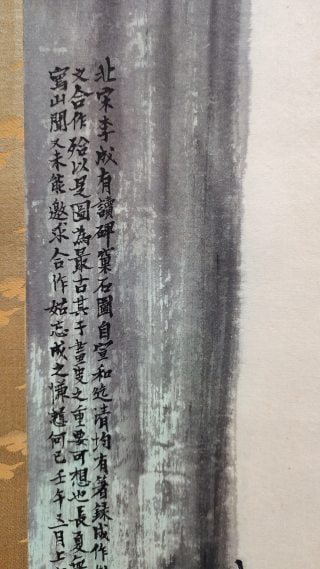 北宋李成有讀碑窠石圖自宣和迄清均有著錄成作
文合作殆以是圖為最古其于畫史之重要可想也長夏無
寫山聞又未能邀求合作姑忘成之慊趙何已壬午三月上